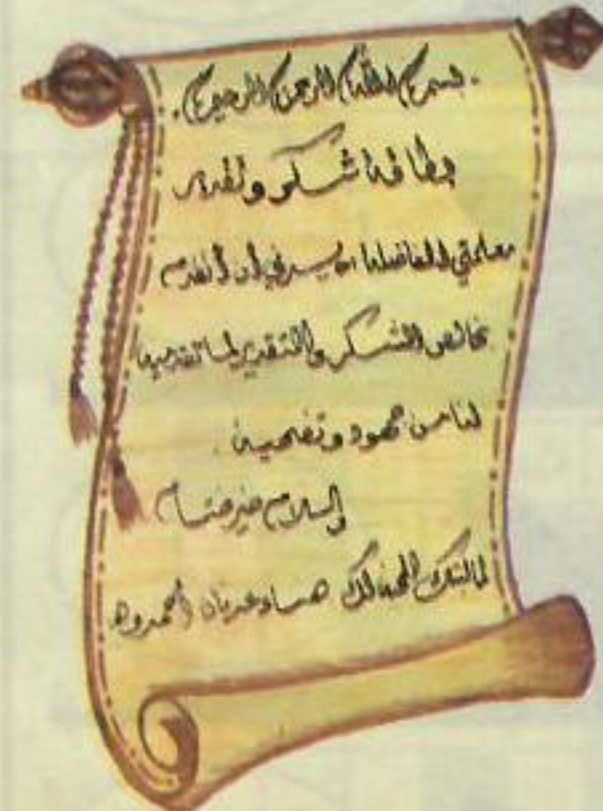 . بسم الله الرحمن الرحيم .
بطاقة شكر وتقدير
معلمتي الفاضلة .. يسرني أن أتقدم
بخالص الشكر والتقدير لما تقدمينه
لنا من جهود وتضحية .
والسلام خير ختام
لك عدنان أحمد